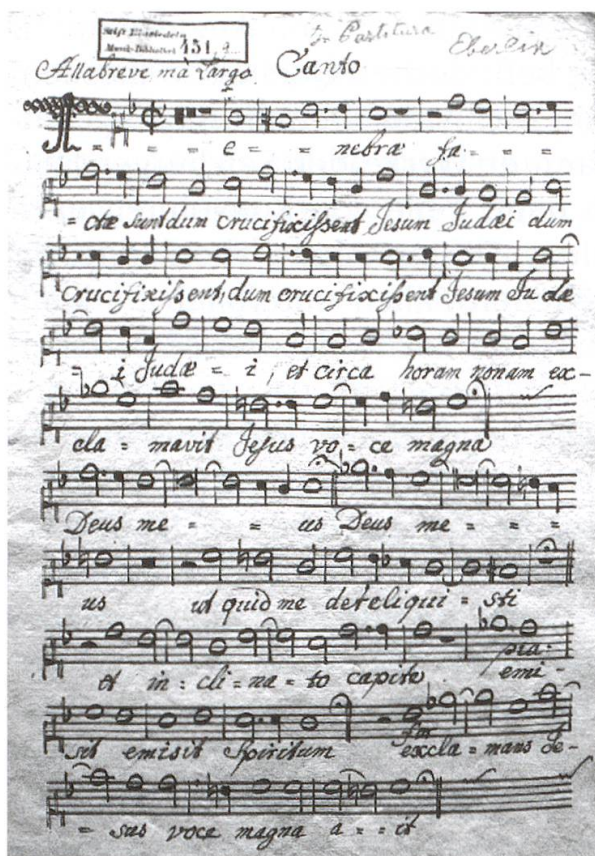 Stift Einsiedeln
Musik-Bibliothek 451,9
In Partitura
Eberlin
Allabreve mà Largo. Canto
T = = = e = = nebræ fa = = =
= ctæ sunt dum crucifixissent Jesum Judæi dum
crucifixissent, dum crucifixissent Jesum Ju dæ
= i Judæ = i, et circa horam nonam ex-
cla = mavit Jesus vo = ce magna
Deus me = = us Deus me = = =
us ut quid me dereliqui = sti
et in = cli = na = to capite pia: emi-
sit emisit Spiritum excla = mans Je-
= sus voce magna a = = it